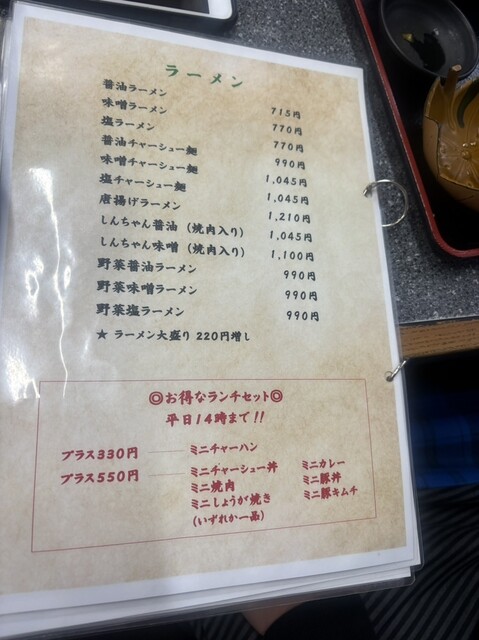 ラーメン
醤油ラーメン 715円
味噌ラーメン 770円
塩ラーメン 770円
醤油チャーシュー麺 990円
味噌チャーシュー麺 1,045円
塩チャーシュー麺 1,045円
唐揚げラーメン 1,210円
しんちゃん醤油（焼肉入り） 1,045円
しんちゃん味噌（焼肉入り） 1,100円
野菜醤油ラーメン 990円
野菜味噌ラーメン 990円
野菜塩ラーメン 990円
★ ラーメン大盛り 220円増し
◎お得なランチセット◎
平日14時まで!!
プラス330円 ミニチャーハン
プラス550円 ミニチャーシュー丼 ミニカレー
ミニ焼肉 ミニ豚丼
ミニしょうが焼き ミニ豚キムチ
(いずれか一品)